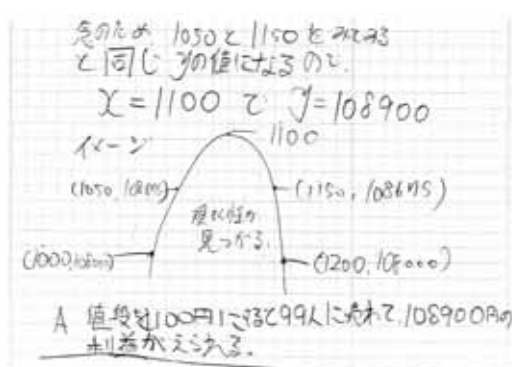 念のため 1050と1150をみてみる
と同じyの値になるので、
x=1100で y=108900
イメージ
1100
(1050, 108675)
(1150, 108675)
見つかる。
(1000, 108000)
(1200, 108000)
A 値段を1100円にすると99人に売れて、108900円の
利益がえられる。